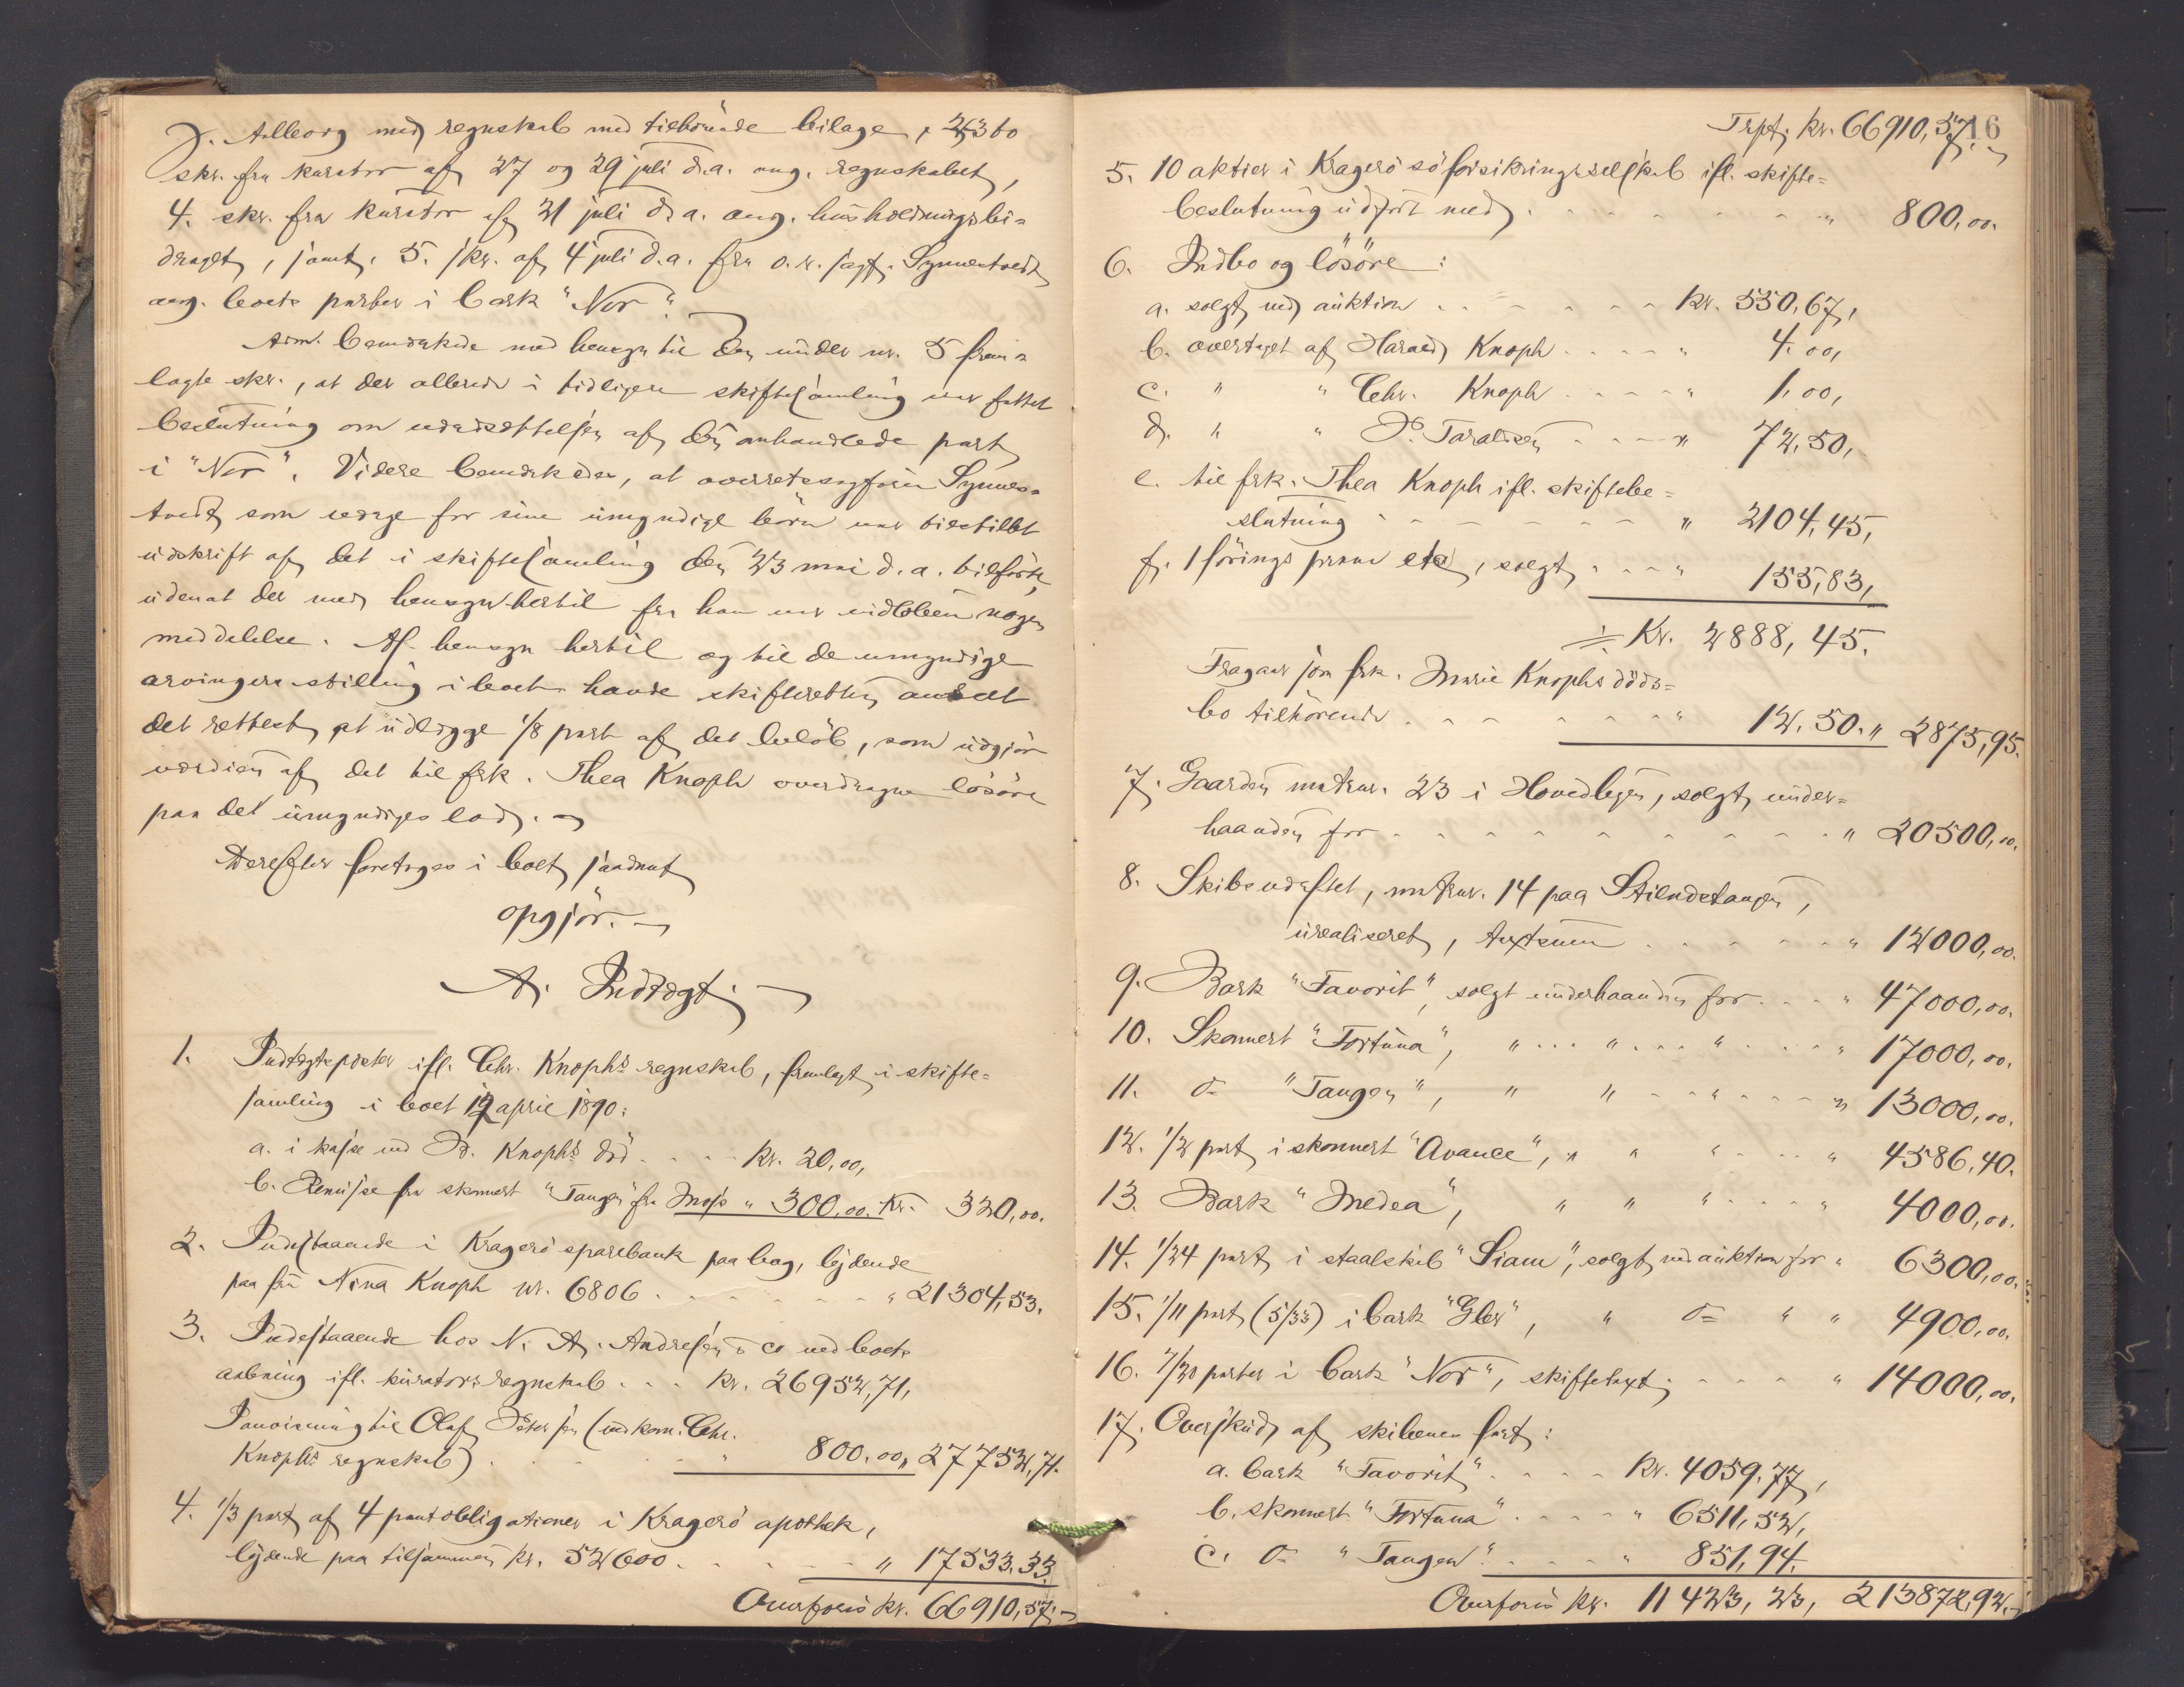 J. Aalborg med regnskab med tilhörende bilage,
skr. fra kurator af 27 og 29 juli d.a. ang. regnskabet,
4. skr. fra kurator af 21 juli d.a. ang. husholdningsbi-
draget, samt, 5. skr. af 4 juli d.a. fra o.r. sagf. Synnestvedt
ang. boets parter i bark "Nor".
Adm. bemærkede med hensyn til den under nr. 5 frem-
lagte skr., at der allerede i tidligere skiftesamling var fattet
beslutning om udædsættelsen af den omhandlede part
i "Nor". Videre bemærkedes, at overretssagförer Synnes-
tvedt som værge for sine umyndige börn var tilstillet
udskrift af det i skiftesamling den 23 mai d.a. tilförte,
udenat der med hensyn hertil fra ham var indlöben nogen
meddelelse. Af hensyn hertil og til de umyndige
arvingers stilling i boet havde skifteretten anseet
det rettest at udlægge 1/8 part af det belöb, som udgjör
værdien af det til frk. Thea Knoph overdragne lösöre
paa det umyndiges lod.
Derefter foretages i boet saadant
opgjör.
A. Indtægt.
1. Indtægtsposter ifl. Chr. Knophs regnskab, fremlagt i skifte-
samling i boet 19 april 1890:
a. i kasse ved D. Knophs död . . . . Kr. 20,00,
b. Remisse fra skonnert "Tangen" fra Moss " 300,00. Kr. 320,00.
2. Indestaaende i Kragerö sparebank paa bog, lydende
paa fru Nina Knoph nr. 6806 . . . . . . . " 21304,53.
3. Indestaaende hos N. A. Andresen & Co ved boets
aabning ifl. kurators regnskab . . . Kr. 26952,71,
Panvisning til Olaf Petersen (indkom. Chr.
Knophs regnskab) . . . . . " 800,00, " 27752,71.
4. 1/3 part af 4 pantobligationer i Kragerö apothek,
lydende paa tilsammen kr. 52600 . . . . . " 17533,33
Overföres kr. 66910,57.
16
Trspt. kr. 66910,57.
5. 10 aktier i Kragerö söforsikringsselskab ifl. skifte-
beslutning udfört med . . . . . . . . " 800,00.
6. Indbo og lösöre:
a. solgt ved auktion . . . . . . Kr. 550,67,
b. overtaget af Harald Knoph . . . . " 4,00,
c. " " Chr. Knoph . . . . " 1,00,
d. " " D. Taraldsen . . . " 72,50,
e. til frk. Thea Knoph ifl. skiftebe-
slutning . . . . . . . " 2104,45,
f. 1 förings pram etc, solgt . . . " 155,83,
÷ Kr. 2888,45.
Fragaar som frk. Marie Knophs döds-
bo tilhörende . . . . . . . " 12.50. " 2875,95.
7. Gaarden matrnr. 23 i Hovedbyen, solgt under-
haanden for . . . . . . . . . . " 20500,00.
8. Skibsværftet, matrnr. 14 paa Stilndstangen,
urealiseret, taxtsum . . . . . . " 12000,00.
9. Bark "Favorit", solgt underhaanden for . . . " 47000,00.
10. Skonnert "Fortuna", " . . . " . . . " . . . . " 17000,00.
11. do "Tangen", " " . . " . . . . " 13000,00.
12. 1/2 part i skonnert "Avance", " " " . . . " 4586,40.
13. Bark "Medea", " " " . . . " 4000,00.
14. 1/24 part i staalskib "Siam", solgt ved auktion for " 6300,00.
15. 1/11 part (5/55) i bark "Gler", " do " " 4900,00.
16. 7/20 parter i bark "Nor", skiftetaxt . . . . " 14000,00.
17. Overskud af skibenes fart:
a. bark "Favorit" . . . . Kr. 4059,77,
b. skonnert "Fortuna" . . . . " 6511,52,
c. do "Tangen" . . . . " 851,94.
Overföres Kr. 11423,23, 213872,92.